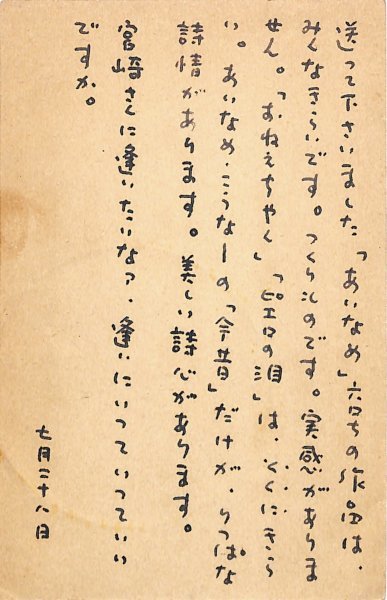 送って下さいました「あいなめ」六号の作品は、
みんなきらいです。つくりものです。実感がありま
せん。「おねえちやん」「ピエロの泪」は、とくにきら
い。あいなめ・こうなーの「今昔」だけが、りつぱな
詩情があります。美しい詩心があります。
宮崎さんに逢いたいなア、逢いにいつていつていい
ですか。
七月二十八日